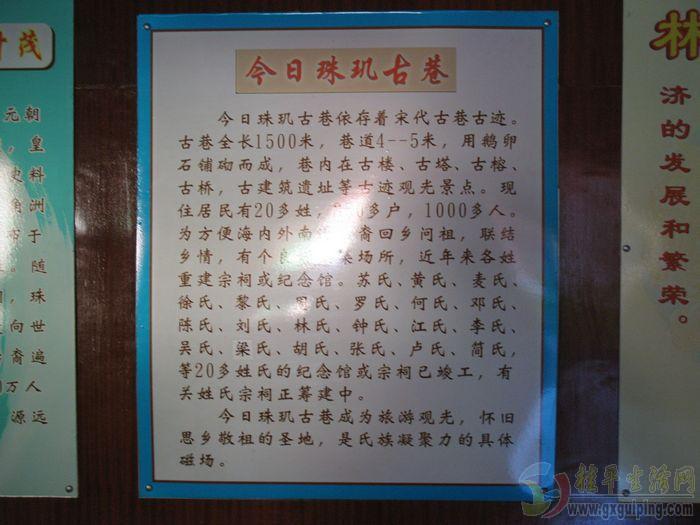 今日珠玑古巷
今日珠玑古巷依存着宋代古巷古迹。
古巷全长1500米，巷道4--5米，用鹅卵
石铺砌而成，巷内在古楼、古塔、古榕、
古桥，古建筑遗址等古迹观光景点。现
住居民有20多姓，多户，1000多人。
为方便海内外南裔回乡问祖，联结
乡情，有个良场所，近年来各姓
重建宗祠或纪念馆。苏氏、黄氏、麦氏、
徐氏、黎氏、氏、罗氏、何氏、邓氏、
陈氏、刘氏、林氏、钟氏、江氏、李氏、
吴氏、梁氏、胡氏、张氏、卢氏、简氏，
等20多姓氏的纪念馆或宗祠已竣工，有
关姓氏宗祠正筹建中。
今日珠玑古巷成为旅游观光，怀旧
思乡敬祖的圣地，是氏族凝聚力的具体
磁场。
茂
元朝
，皇
史料
角洲
于
。随
，珠
向世
裔遍
万人
源远
林
济的发展和繁荣。
桂平生活网
www.gxguiping.com